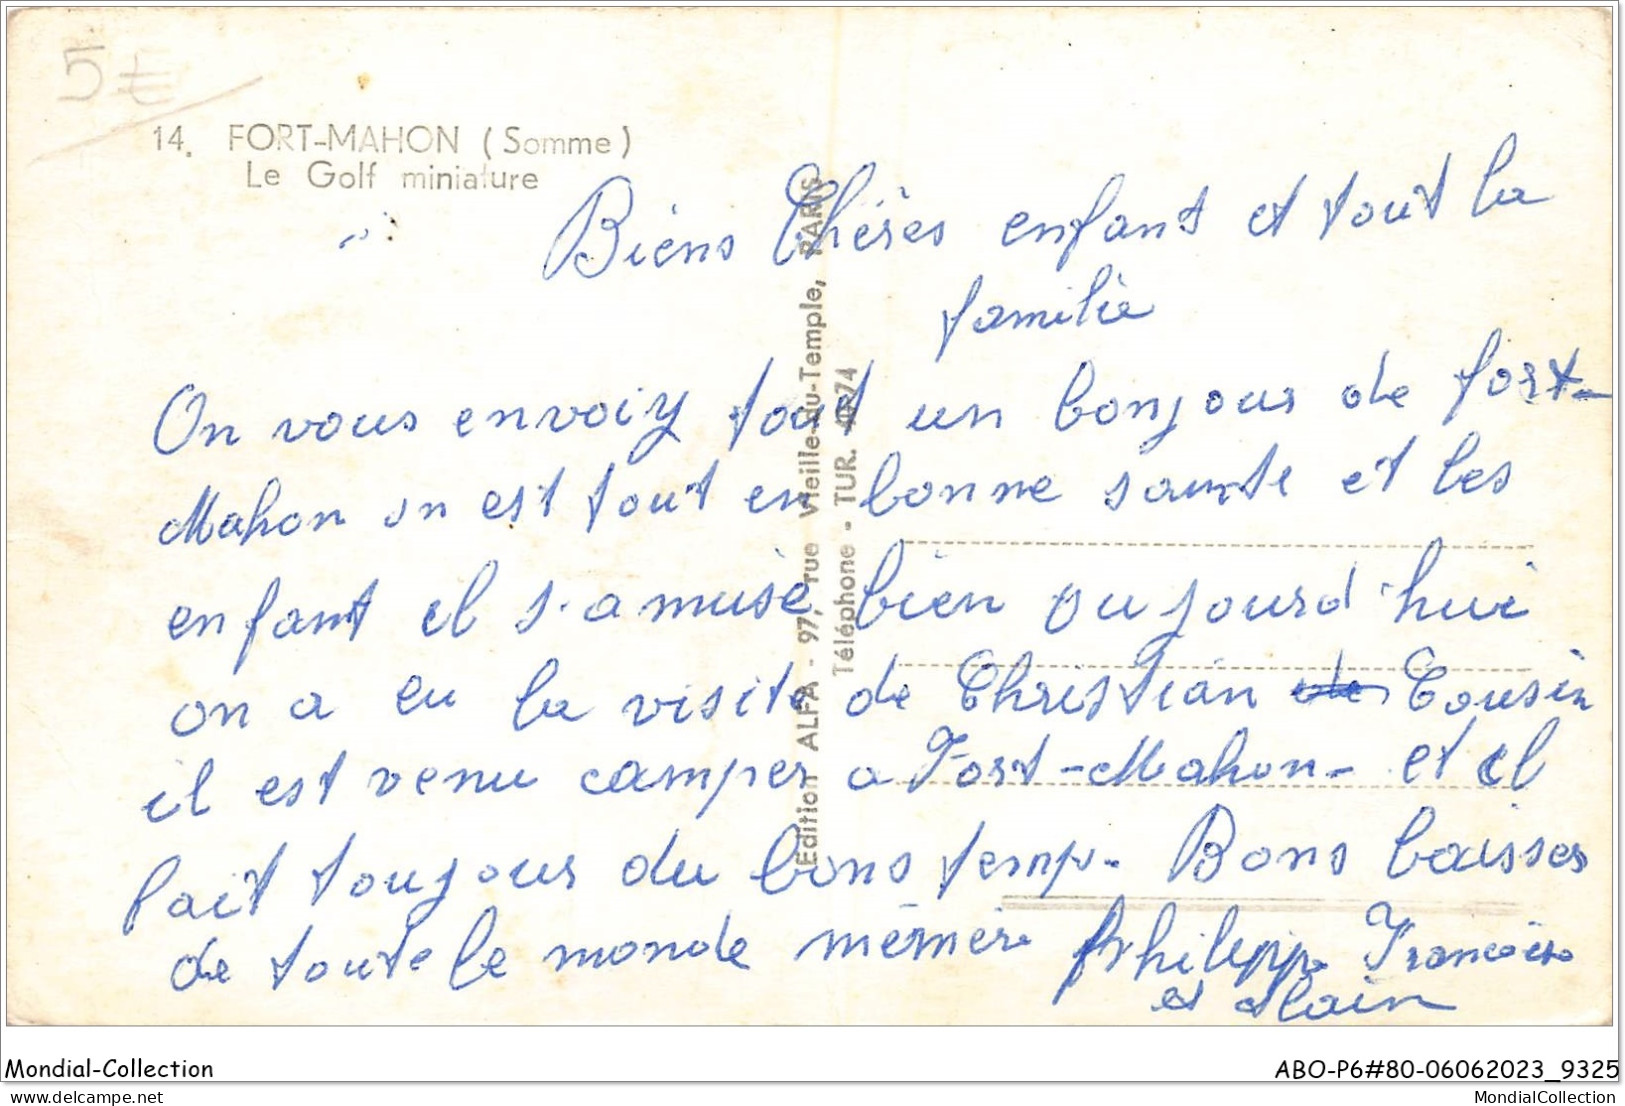 5€
14. FORT-MAHON (Somme)
Le Golf miniature
Biens Chéres enfant et tout la
familie
On vous envoiy tout un bonjour de fort-
Mahon on est tout en bonne sante et les
enfant il s'amuse bien oujourd'hui
on a eu la visite de Christian de Cousin
il est venu camper a Fort-Mahon- et il
fait toujours du bons temp. Bons baisses
de toute le monde mémère Philippe Francoise
et Alain
Edition ALFA - 97, rue Vieille-du-Temple, PARIS
Téléphone - TUR. 40-74
Mondial-Collection
ABO-P6#80-06062023_9325
mondial-collection.delcampe.net
MondialCollection